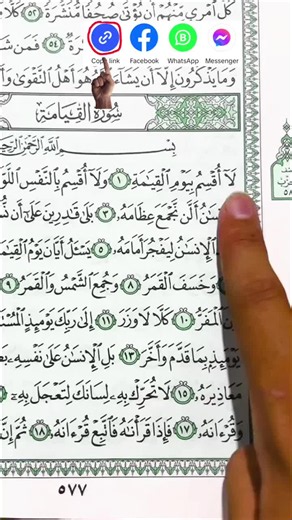 كُلُّ ٱمْرِئٍ مِّنْهُمْ أَن يُؤْتَىٰ صُحُفًا مُّنَشَّرَةً ٥٢ كَلَّا
Copy link Facebook WhatsApp Messenger
٥٤ فَمَن شَ
وَمَا يَذْكُرُونَ إِلَّا أَن يَشَاءَ هُوَ أَهْلُ ٱلتَّقْوَىٰ وَأ
سُورَةُ ٱلْقِيَامَةِ
بِسْمِ ٱللَّهِ ٱلرَّحْمَٰنِ ٱلرَّحِي
لَا أُقْسِمُ بِيَوْمِ ٱلْقِيَٰمَةِ ١ وَلَا أُقْسِمُ بِٱلنَّفْسِ ٱللَّوَّ
سَٰنُ أَلَّن نَّجْمَعَ عِظَامَهُۥ ٣ بَلَىٰ قَٰدِرِينَ عَلَىٰ أَن نُّ
ٱلْإِنسَٰنُ لِيَفْجُرَ أَمَامَهُۥ ٥ يَسْـَٔلُ أَيَّانَ يَوْمُ ٱلْقِيَٰ
٧ وَخَسَفَ ٱلْقَمَرُ ٨ وَجُمِعَ ٱلشَّمْسُ وَٱلْقَمَرُ ٩
ٱلْمَفَرُّ ١٠ كَلَّا لَا وَزَرَ ١١ إِلَىٰ رَبِّكَ يَوْمَئِذٍ ٱلْمُسْتَ
يَوْمَئِذٍۭ بِمَا قَدَّمَ وَأَخَّرَ ١٣ بَلِ ٱلْإِنسَٰنُ عَلَىٰ نَفْسِهِۦ بَص
مَعَاذِيرَهُۥ ١٥ لَا تُحَرِّكْ بِهِۦ لِسَانَكَ لِتَعْجَلَ بِهِۦ
وَقُرْءَانَهُۥ ١٧ فَإِذَا قَرَأْنَٰهُ فَٱتَّبِعْ قُرْءَانَهُۥ ١٨ ثُمَّ إِنَّ
٥٧٧